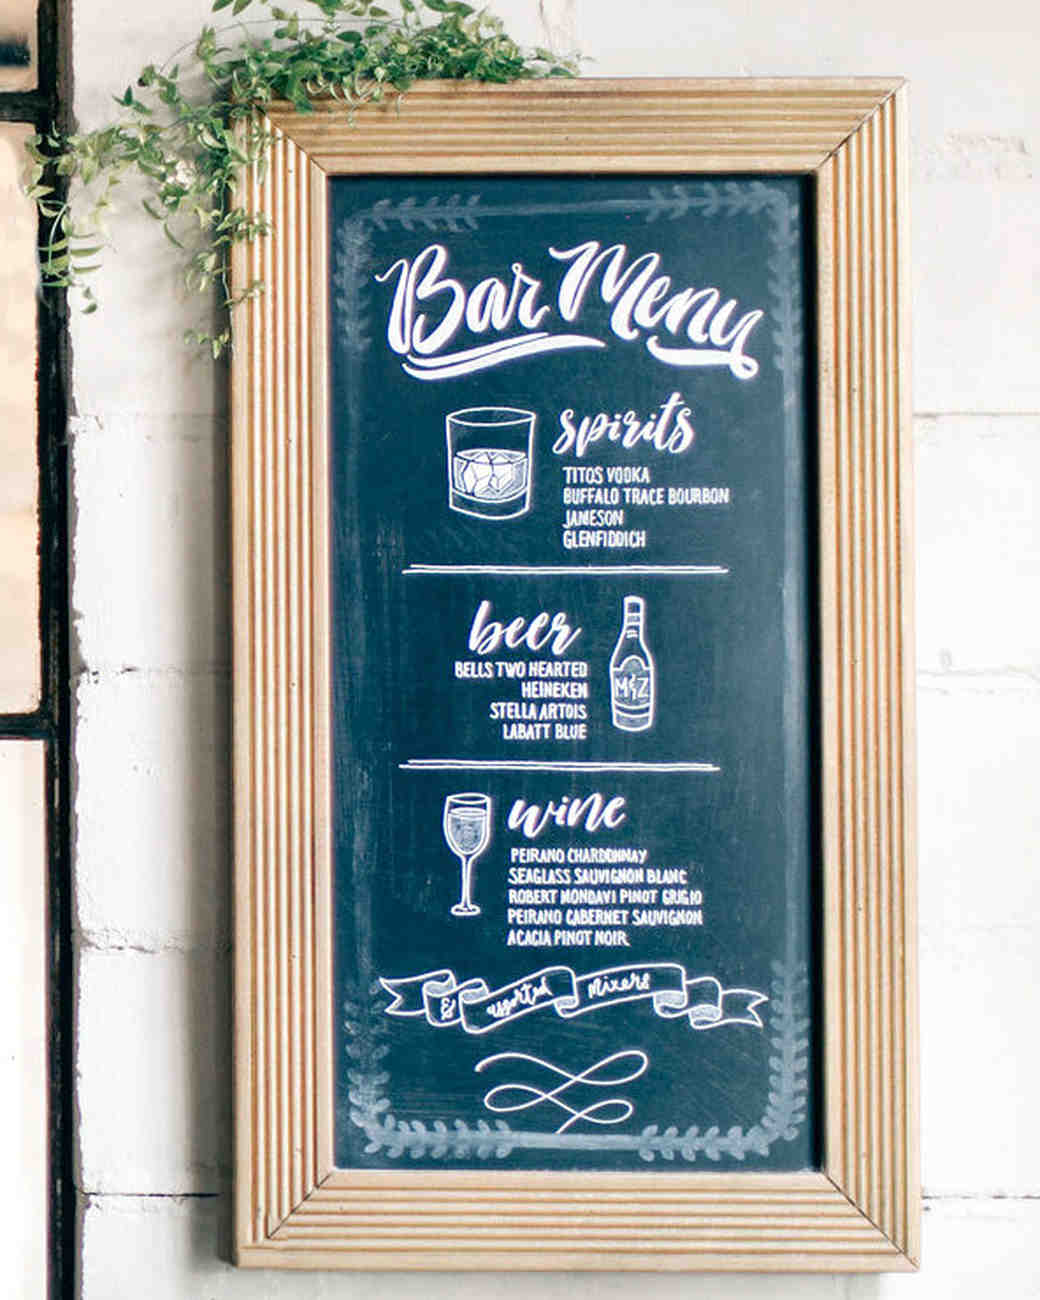 Bar Menu
spirits
TITOS VODKA
BUFFALO TRACE BOURBON
JAMESON
GLENFIDDICH
beer
BELLS TWO HEARTED
HEINEKEN
STELLA ARTOIS
LABATT BLUE
M&Z
wine
PEIRANO CHARDONNAY
SEAGLASS SAUVIGNON BLANC
ROBERT MONDAVI PINOT GRIGIO
PEIRANO CABERNET SAUVIGNON
ACACIA PINOT NOIR
& assorted Mixers